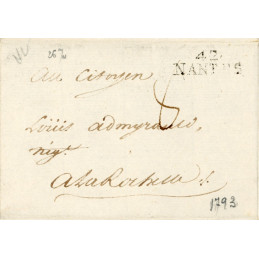 42
NANTES
Au Citoyen
Louis admyrauld,
Negt.
A La Rochelle
1793